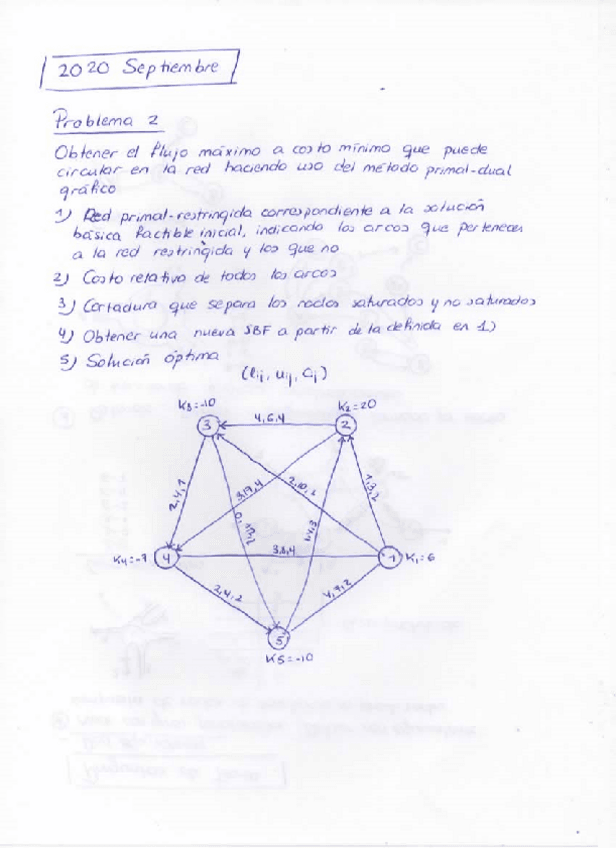 2020 Septiembre
Problema 2
Obtener el flujo máximo a costo mínimo que puede
circular en la red haciendo uso del método primal-dual
gráfico
1) Red primal-restringida correspondiente a la solución
básica factible inicial, indicando los arcos que perteneces
a la red restringida y los que no
2) Costo relativo de todos los arcos
3) Cortadura que separa los nodos saturados y no saturados
4) Obtener una nueva SBF a partir de la definida en 1)
5) Solución óptima
(lij, uij, Cij)
K3=-10
K2=20
3
4,6,4
2
2,4,1
3,17,4
1,3,2
K4=-7
4
3,8,4
1
K1=6
2,4,2
4,9,2
5
K5=-10